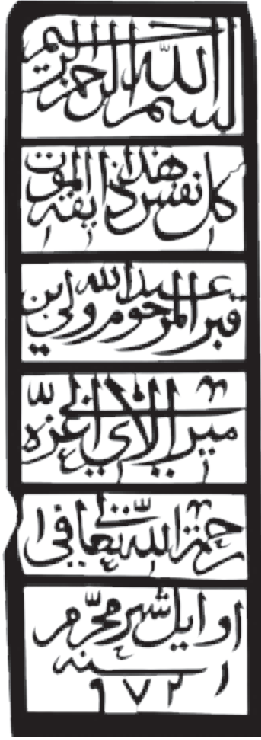 بسم الله الرحمن الرحيم
كل نفس ذايقة الموت هذا
قبر المرحوم ولي ابن عبد الله
مير الاي غزّه
رحمة الله تعالى في
اوايل شهر محرّم سنه ٩٧٢